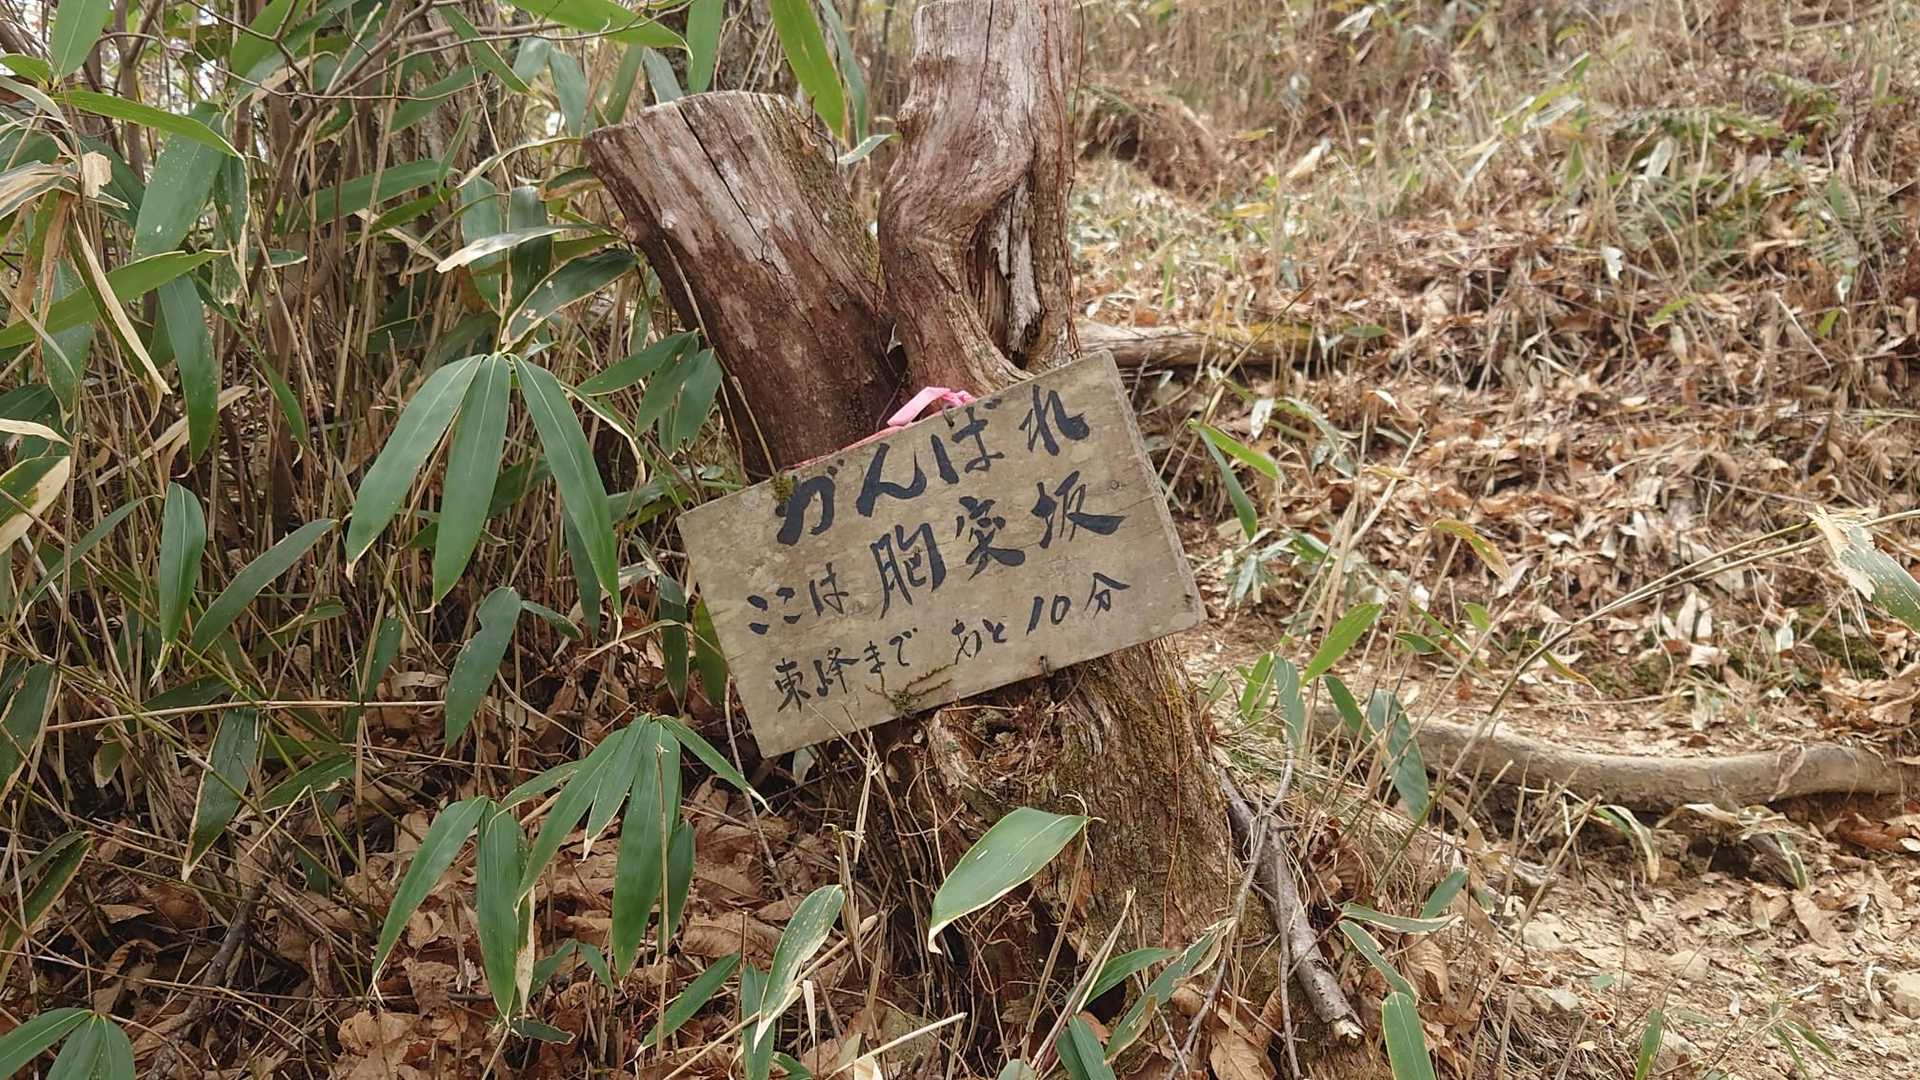 がんばれ
ここは胸突坂
東峰まで あと10分